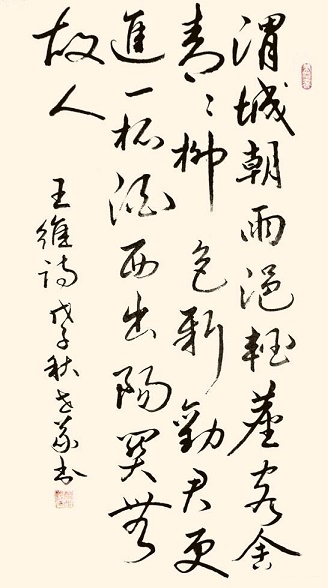 渭城朝雨浥輕塵客舍
青〻柳色新勸君更
進一杯酒西出陽関無
故人
王維詩戊子秋志義书